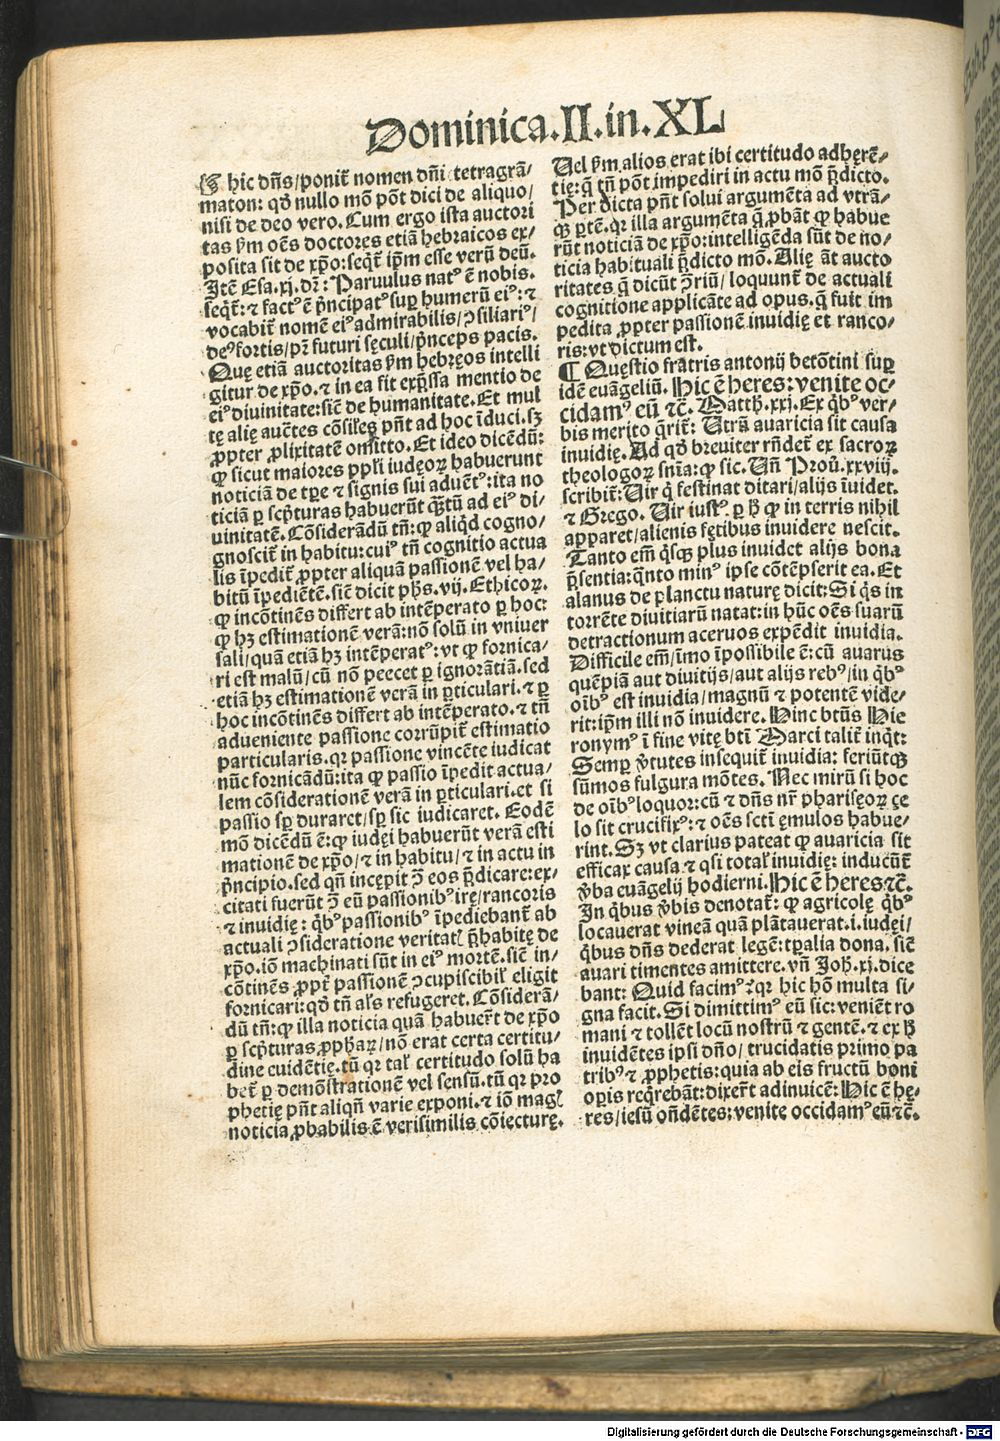 Dominica.II.in.XL
hic dn̄s/ponit̄ nomen dn̄i tetragrā/
maton: qd̄ nullo mō pōt dici de aliquo/
nisi de deo vero. Cum ergo ista auctori
tas ẜm oēs doctores etiā hebraicos ex/
posita sit de xp̄o:seqt̄ ip̄m esse verū deū.
Itē Esa.xj.dr̄: Paruulus natꝰ ē nobis.
seqt̄: ⁊ factꝰ ē p̄ncipatꝰ suꝑ humerū eiꝰ: ⁊
vocabit̄ nomē eiꝰ admirabilis/ꝯsiliariꝰ/
deꝰ fortis/pr̄ futuri sęculi/p̄nceps pacis.
Quę etiā auctoritas ẜm hebręos intelli
gitur de xp̄o.⁊ in ea fit exp̄ssa mentio de
eiꝰ diuinitate:sic̄ de humanitate. Et mul
tę alię auc̄tes cōsiles pn̄t ad hoc īduci.sꝫ
ꝓpter ꝓlixitatē omitto. Et ideo dicēdū:
ꝙ sicut maiores ppl̄i iudęoꝝ habuerunt
noticiā de tp̄e ⁊ signis sui aduētꝰ:ita no
ticiā ꝑ scp̄turas habuerūt qꝫtū ad eiꝰ di/
uinitatē. Cōsiderādū tn̄:ꝙ aliqd̄ cogno/
gnoscit̄ in habitu:cuiꝰ tn̄ cognitio actua
lis īpedit̄ ꝓpter aliquā passionē vel ha/
bitū īpediētē.sic̄ dicit ph̄s.vij. Ethicoꝝ.
ꝙ incōtinēs differt ab intēperato ꝑ hoc:
ꝙ hꝫ estimationē verā:nō solū in vniuer
sali/quā etiā hꝫ intēperatꝰ:vt ꝙ fornica/
ri est malū/cū nō peccet ꝑ ignorātiā.sed
etiā hꝫ estimationē verā in ꝑticulari.⁊ ꝑ
hoc incōtinēs differt ab intēperato.⁊ tn̄
adueniente passione corrūpit̄ estimatio
particularis.qr̄ passione vincēte iudicat
nūc fornicādū:ita ꝙ passio īpedit actua/
lem cōsiderationē verā in ꝑticulari.et si
passio sꝑ duraret/sꝑ sic iudicaret. Eodē
mō dicēdū ē:ꝙ iudęi habuerūt verā esti
mationē de xp̄o/⁊ in habitu/⁊ in actu in
p̄ncipio.sed qn̄ incępit ꝯ̄ eos p̄dicare:ex/
citati fuerūt ꝯ̄ eū passionibꝰ irę/rancoris
⁊ inuidię: qb̄ꝰ passionibꝰ īpediebant̄ ab
actuali ꝯsideratione veritatꝭ p̄habitę de
xp̄o.iō machinati sūt in eiꝰ mortē.sic̄ in/
cōtinēs ꝓpt̄ passionē ꝯcupiscibil̄ eligit
fornicari:qd̄ tn̄ al̄s refugeret. Cōsiderā/
dū tn̄:ꝙ illa noticia quā habuer̄t de xp̄o
ꝑ scp̄turas ꝓphaꝝ/nō erat certa certitu/
dine euidētię.tū qr̄ tal̄ certitudo solū ha
bet̄ ꝑ demōstrationē vel sensū.tū qr̄ pro
phetię pn̄t aliqn̄ varie exponi.⁊ iō magꝭ
noticia ꝓbabilis ē verisimilis cōiecturę.
Uel ẜm alios erat ibi certitudo adhęrē/
tię:q̄ tn̄ pōt impediri in actu mō p̄dicto.
Per dicta pn̄t solui argumēta ad vtrā/
qꝫ ꝑtē.qr̄ illa argumēta q̄ ꝓbāt ꝙ habue
rūt noticiā de xp̄o:intelligēda sūt de no/
ticia habituali p̄dicto mō. Alię āt aucto
ritates q̄ dicūt ꝯ̄riū/loquunt̄ de actuali
cognitione applicāte ad opus.q̄ fuit im
pedita ꝓpter passionē inuidię et ranco/
ris:vt dictum est.
¶ Quęstio fratris antonij betōtini suꝑ
idē euāgeliū. Hic ē heres:venite oc/
cidamꝰ eū ⁊c̄. Matth.xxj. Ex qb̄ꝰ ver/
bis merito q̄rit̄: Utrū auaricia sit causa
inuidię. Ad qd̄ breuiter rn̄det̄ ex sacroꝝ
theologoꝝ sn̄ia:ꝙ sic. Un̄ Prou̇.xxviij.
scribit̄: Uir q̇ festinat ditari/alijs īuidet.
⁊ Grego. Uir iustꝰ ꝑ ꝙ in terris nihil
apparet/alienis sętibus inuidere nescit.
Tanto em̄ qsqꝫ plus inuidet alijs bona
p̄sentia:qn̄to minꝰ ipse cōtēpserit ea. Et
alanus de planctu naturę dicit: Si qs in
torrēte diuitiarū natat:in hūc oēs suarū
detractionum aceruos expēdit inuidia.
Difficile em̄/īmo īpossibile ē:cū auarus
quēpiā aut diuitijs/aut alijs rebꝰ/in qb̄ꝰ
oībꝰ est inuidia/magnū ⁊ potentē vide/
rit:ip̄m illi nō inuidere. Hinc btūs Hie
ronymꝰ ī fine vitę btī Marci talit̄ inqt̄:
Semꝑ v̄tutes insequit̄ inuidia: feriūtqꝫ
sūmos fulgura mōtes. Nec mirū si hoc
de oībꝰ loquor:cū ⁊ dn̄s nr̄ phariseoꝝ çe
lo sit crucifixꝰ:⁊ oēs sctī ęmulos habue/
rint. Sꝫ vt clarius pateat ꝙ auaricia sit
efficax causa ⁊ qsi total̄ inuidię: inducūt̄
v̄ba euāgelij hodierni. Hic ē heres⁊c̄.
In qbus v̄bis denotat̄: ꝙ agricolę qb̄ꝰ
locauerat vineā quā plātauerat.i.iudęi/
qbus dn̄s dederat legē:tꝑalia dona.sic̄
auari timentes amittere.vn̄ Joh.xj.dice
bant: Quid facimꝰ:qr̄ hic hō multa si/
gna facit. Si dimittimꝰ eū sic:veniēt ro
mani ⁊ tollēt locū nostrū ⁊ gentē.⁊ ex ħ
inuidētes ipsi dn̄o/trucidatis primo pa
tribꝰ ⁊ ꝓphetis:quia ab eis fructū boni
opis req̄rebāt:dixer̄t adinuicē: Hic ē hę/
res/iesū on̄dētes:venite occidamꝰ eū⁊c̄.
Digitalisierung gefördert durch die Deutsche Forschungsgemeinschaft - DFG